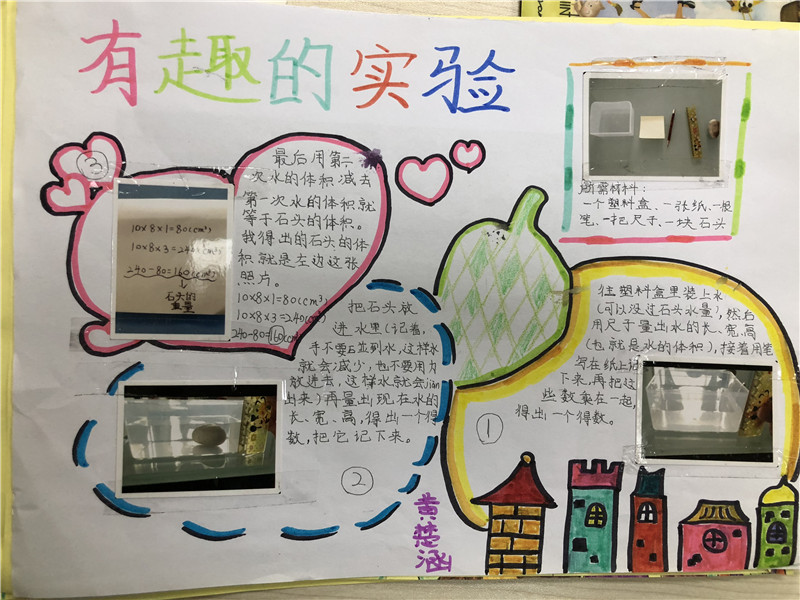 有趣的实验
所需材料:
一个塑料盒、一张纸、一根
笔、一把尺子、一块石头
往塑料盒里装上水
(可以没过石头水量),然后
用尺子量出水的长、宽、高
(也就是水的体积),接着用笔
写在纸上记
下来,再把这
些数乘在一起,
得出一个得数。
①
把石头放
进水里(记着,
手不要碰到水,这样水
就会减少,也不要用力
放进去,这样水就会jiàn
出来)再量出现在水的
长、宽、高,得出一个得
数,把它记下来。
②
③
最后用第二
次水的体积减去
第一次水的体积就
等于石头的体积。
我得出的石头的体
积就是左边这张
照片。
10×8×1=80(cm³)
10×8×3=240(cm³)
240-80=160(cm³)
10×8×1=80(cm³)
10×8×3=240(cm³)
240-80=160(cm³)
石头的
重量
黄楚涵